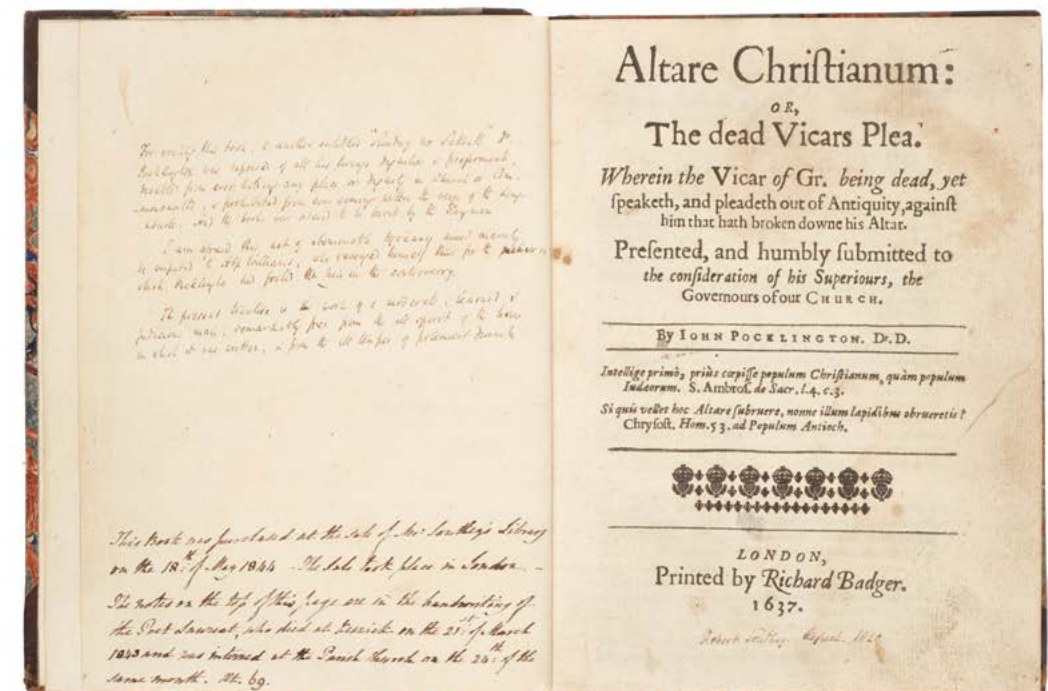 For writing this book, & another entitled "Sunday no Sabbath" Dr.
Pocklington was deprived of all his livings dignities & preferments,
disabled from ever holding any place or dignity in Church or Com-
monwealth, & prohibited from ever coming within the verge of the Kings
Courts. And the books were ordered to be burnt by the Hangman
I am afraid this act of abominable tyranny must mainly
be imputed to Abp Williams, who revenged himself thus for the
which Pocklington had foiled him in the controversy.
The present treatise is the work of a moderate, learned &
judicious man, remarkably free from the ill spirit of the times
in which it was written, & from the ill temper of polemical
This Book was purchased at the sale of Mr. Southey's Library
on the 18th of May 1844 - The Sale took place in London -
The notes on the top of this page are in the handwriting of
the Poet Laureat, who died at Keswick on the 21st of March
1843 and was interred at the Parish Church on the 24th of the
same month. Æt. 69.
Altare Chriſtianum:
OR,
The dead Vicars Plea.
Wherein the Vicar of Gr. being dead, yet
ſpeaketh, and pleadeth out of Antiquity, againſt
him that hath broken downe his Altar.
Preſented, and humbly ſubmitted to
the conſideration of his Superiours, the
Governours of our CHURCH.
By IOHN POCKLINGTON. Dr. D.
Intellige primò, priùs cœpiſſe populum Chriſtianum, quàm populum
Iudæorum. S. Ambroſ. de Sacr. l.4. c.3.
Si quis vellet hoc Altare ſubruere, nonne illum lapidibus obrueretis?
Chryſoſt. Hom. 53. ad Populum Antioch.
LONDON,
Printed by Richard Badger.
1637.
Robert Southey. Keswick. 1820